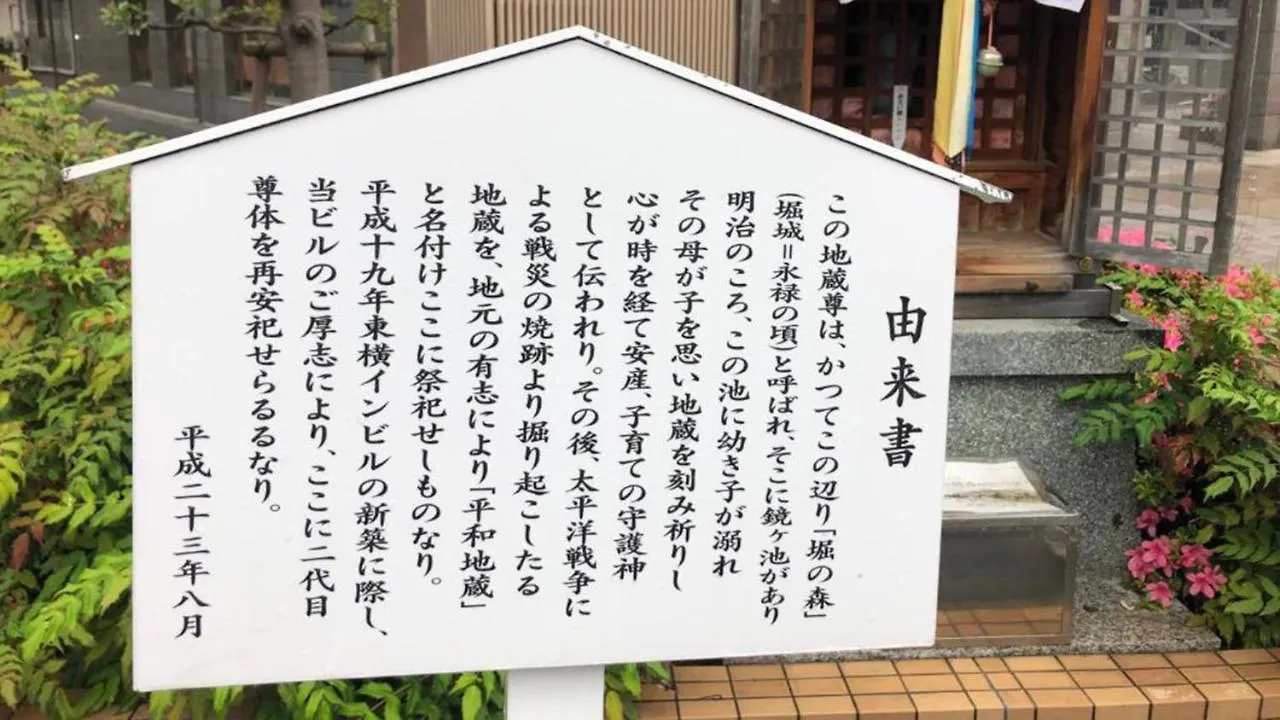 由来書
この地蔵尊は、かつてこの辺り「堀の森」
(堀城=永禄の頃)と呼ばれ、そこに鏡ヶ池があり
明治のころ、この池に幼き子が溺れ
その母が子を思い地蔵を刻み祈りし
心が時を経て安産、子育ての守護神
として伝われり。その後、太平洋戦争に
よる戦災の焼跡より掘り起こしたる
地蔵を、地元の有志により「平和地蔵」
と名付けここに祭祀せしものなり。
平成十九年東横インビルの新築に際し、
当ビルのご厚志により、ここに二代目
尊体を再安祀せらるるなり。
平成二十三年八月